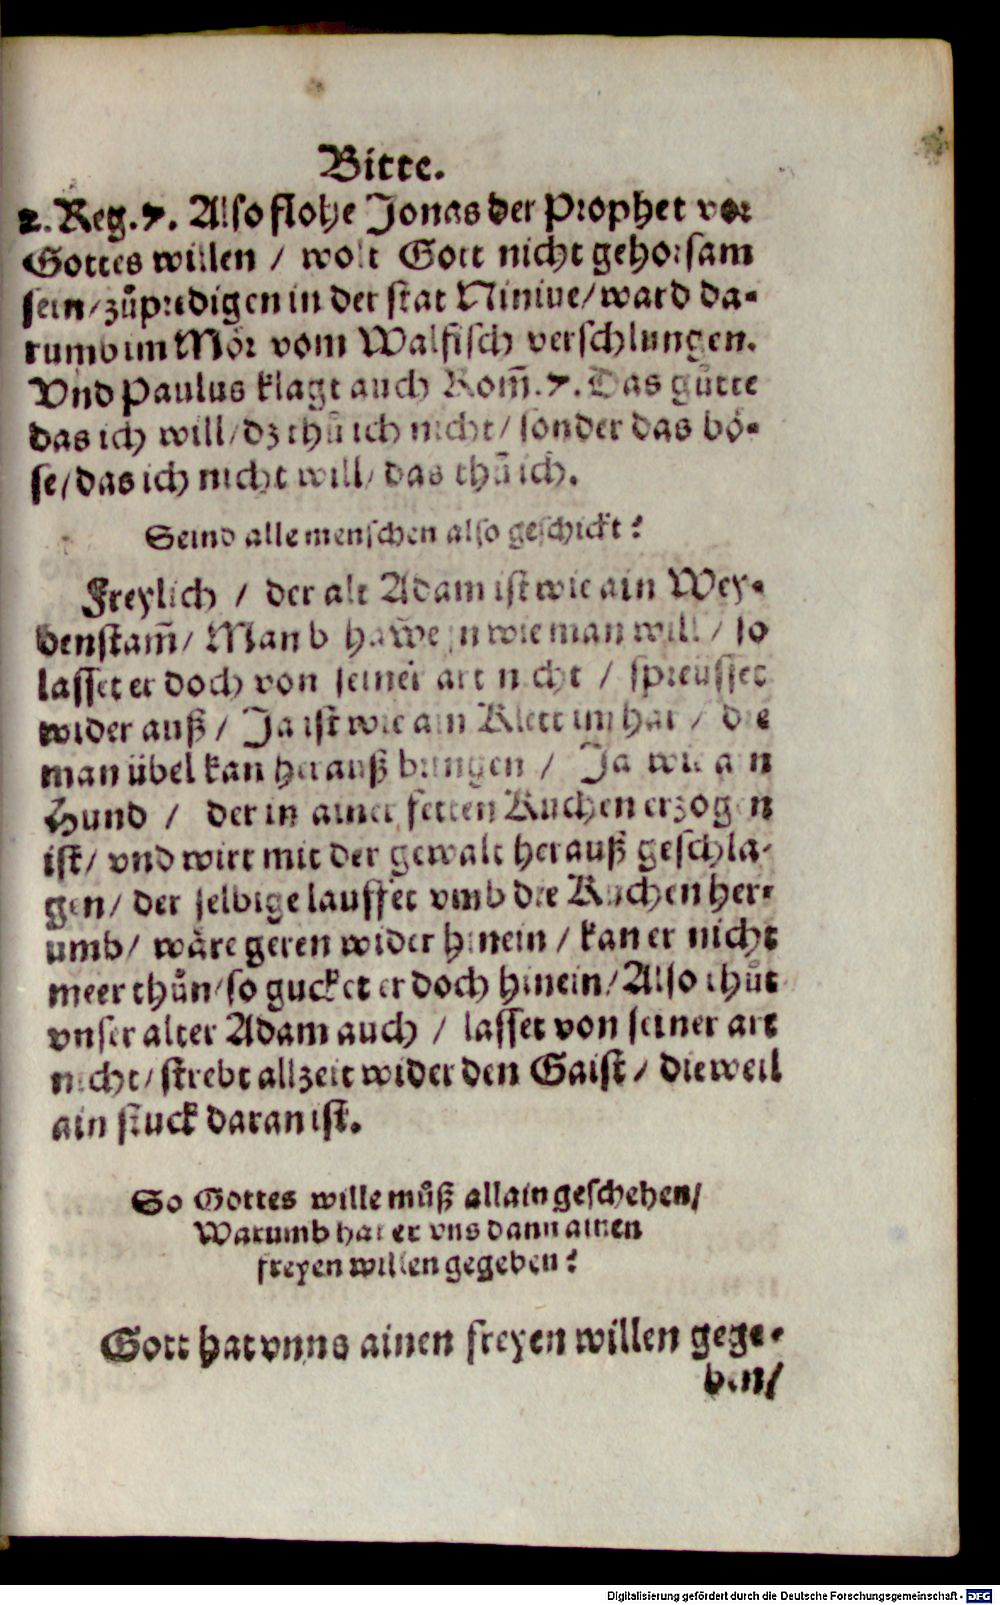 Bitte.
2. Reg. 7. Also flohe Jonas der Prophet vor
Gottes willen / wolt Gott nicht gehorsam
sein / zůpredigen in der stat Niniue / ward da-
rumb im Mör vom Walfisch verschlungen.
Vnd Paulus klagt auch Rom̃. 7. Das gůtte
das ich will / dz thů ich nicht / sonder das bö-
se / das ich nicht will / das thů ich.
Seind alle menschen also geschickt?
Freylich / der alt Adam ist wie ain Wey-
denstam̃ / Man wie man will / so
lasset er doch von seiner art nicht / spreüsset
wider auß / Ja ist wie ain Klett im har / die
man übel kan herauß bringen / Ja wie ain
Hund / der in ainer fetten Kuchen erzogen
ist / vnd wirt mit der gewalt herauß geschla-
gen / der selbige lauffet vmb die Kuchen her-
umb / wäre geren wider hinein / kan er nicht
meer thůn / so gucket er doch hinein / Also thůt
vnser alter Adam auch / lasset von seiner art
nicht / strebt allzeit wider den Gaist / dieweil
ain stuck daran ist.
So Gottes wille můß allain geschehen /
Warumb hat er vns dann ainen
freyen willen gegeben?
Gott hat vnns ainen freyen willen gege-
ben /
Digitalisierung gefördert durch die Deutsche Forschungsgemeinschaft - DFG